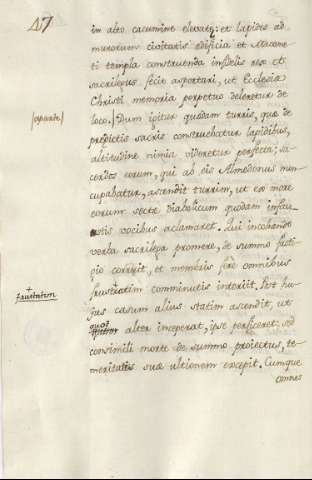 47
in alto cacumine elevatq; et lapides ad
murorum civitatis edificia et Macome-
ti templa construenda infidelis rex et
sacrilegus fecit asportari, ut Ecclesia
Christi memoria perpetuo deleretur de
loco. Dum igitur quadam turris, quæ de
predictis sacris construebatur lapidibus,
altitudine nimia videretur perfecta; sa-
cerdos eorum, qui ab eis Almedonus nun-
cupabatur, ascendit turrim, ut eo more
eorum secte Diabolicum quodam infau-
stis vocibus aclamaret. Qui incohando
verba sacrilega promere, de summo fasti-
gio corruit, et membris ferè omnibus
frustratim comminutis interiit. Post hu-
jus casum alius statim ascendit, ut
quos
alter inceperat, ipse perficeret; sed
consimili morte de summo proiectus, te-
meritatis suæ ultionem excepit. Cumque
omnes
aparte
frustatim